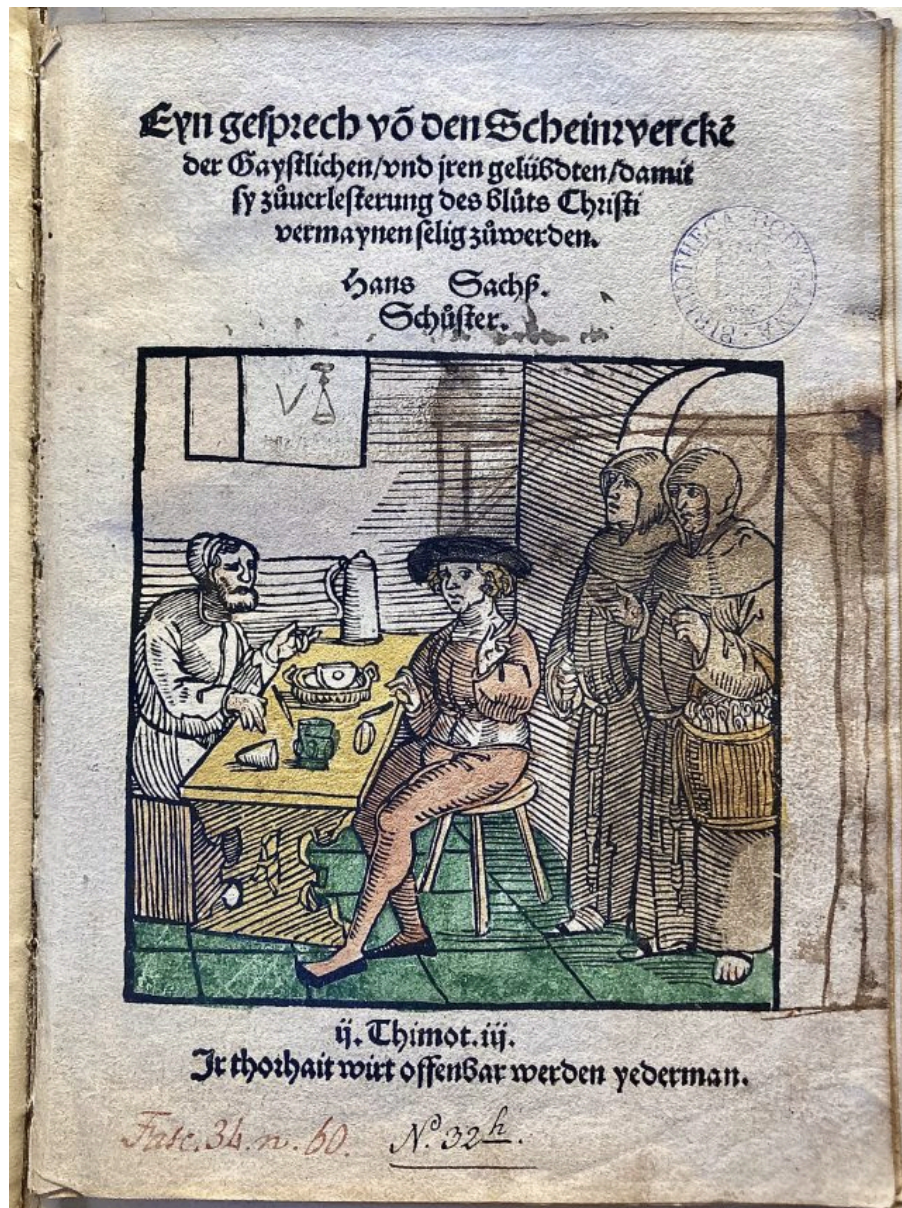 Eyn gesprech võ den Scheinwerckẽ
der Gaystlichen/vnd jren gelübdten/damit
sy zůuerlesterung des blůts Christi
vermaynen selig zůwerden.
Hans Sachß.
Schůster.
BIBLIOTHECA
ij. Thimot. iij.
Ir thorhait wirt offenbar werden yederman.
Fasc. 34. n. 60. Nº 32h.